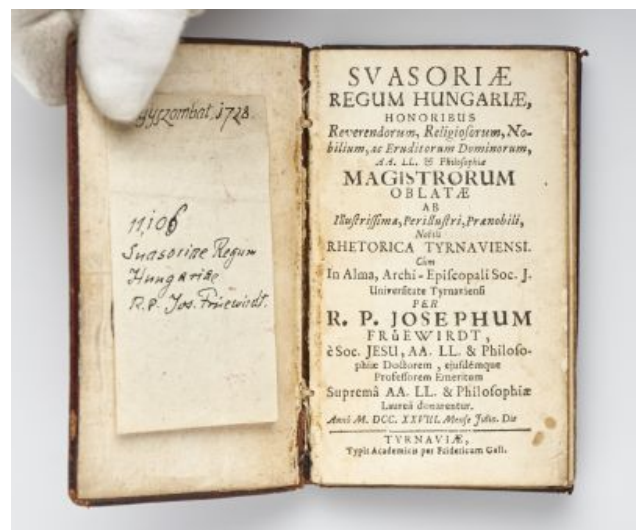 gyszombat, 1728.
11,106
Suasoriae Regum
Hungariae
R. P. Jos. Früewirdt.
SVASORIÆ
REGUM HUNGARIÆ,
HONORIBUS
Reverendorum, Religioſorum, No-
bilium, ac Eruditorum Dominorum,
AA. LL. & Philoſophiæ
MAGISTRORUM
OBLATÆ
AB
Illuſtriſſima, Perilluſtri, Prænobili,
Nobili
RHETORICA TYRNAVIENSI.
Cùm
In Alma, Archi-Epiſcopali Soc. J.
Univerſitate Tyrnavienſi
PER
R. P. JOSEPHUM
FRůEWIRDT,
è Soc. JESU, AA. LL. & Philoſo-
phiæ Doctorem, ejuſdémque
Profeſſorem Emeritum
Supremâ AA. LL. & Philoſophiæ
Laureâ donarentur.
Annô M. DCC. XXVIII. Menſe Julio. Die
TYRNAVIÆ,
Typis Academicis per Fridericum Gall.